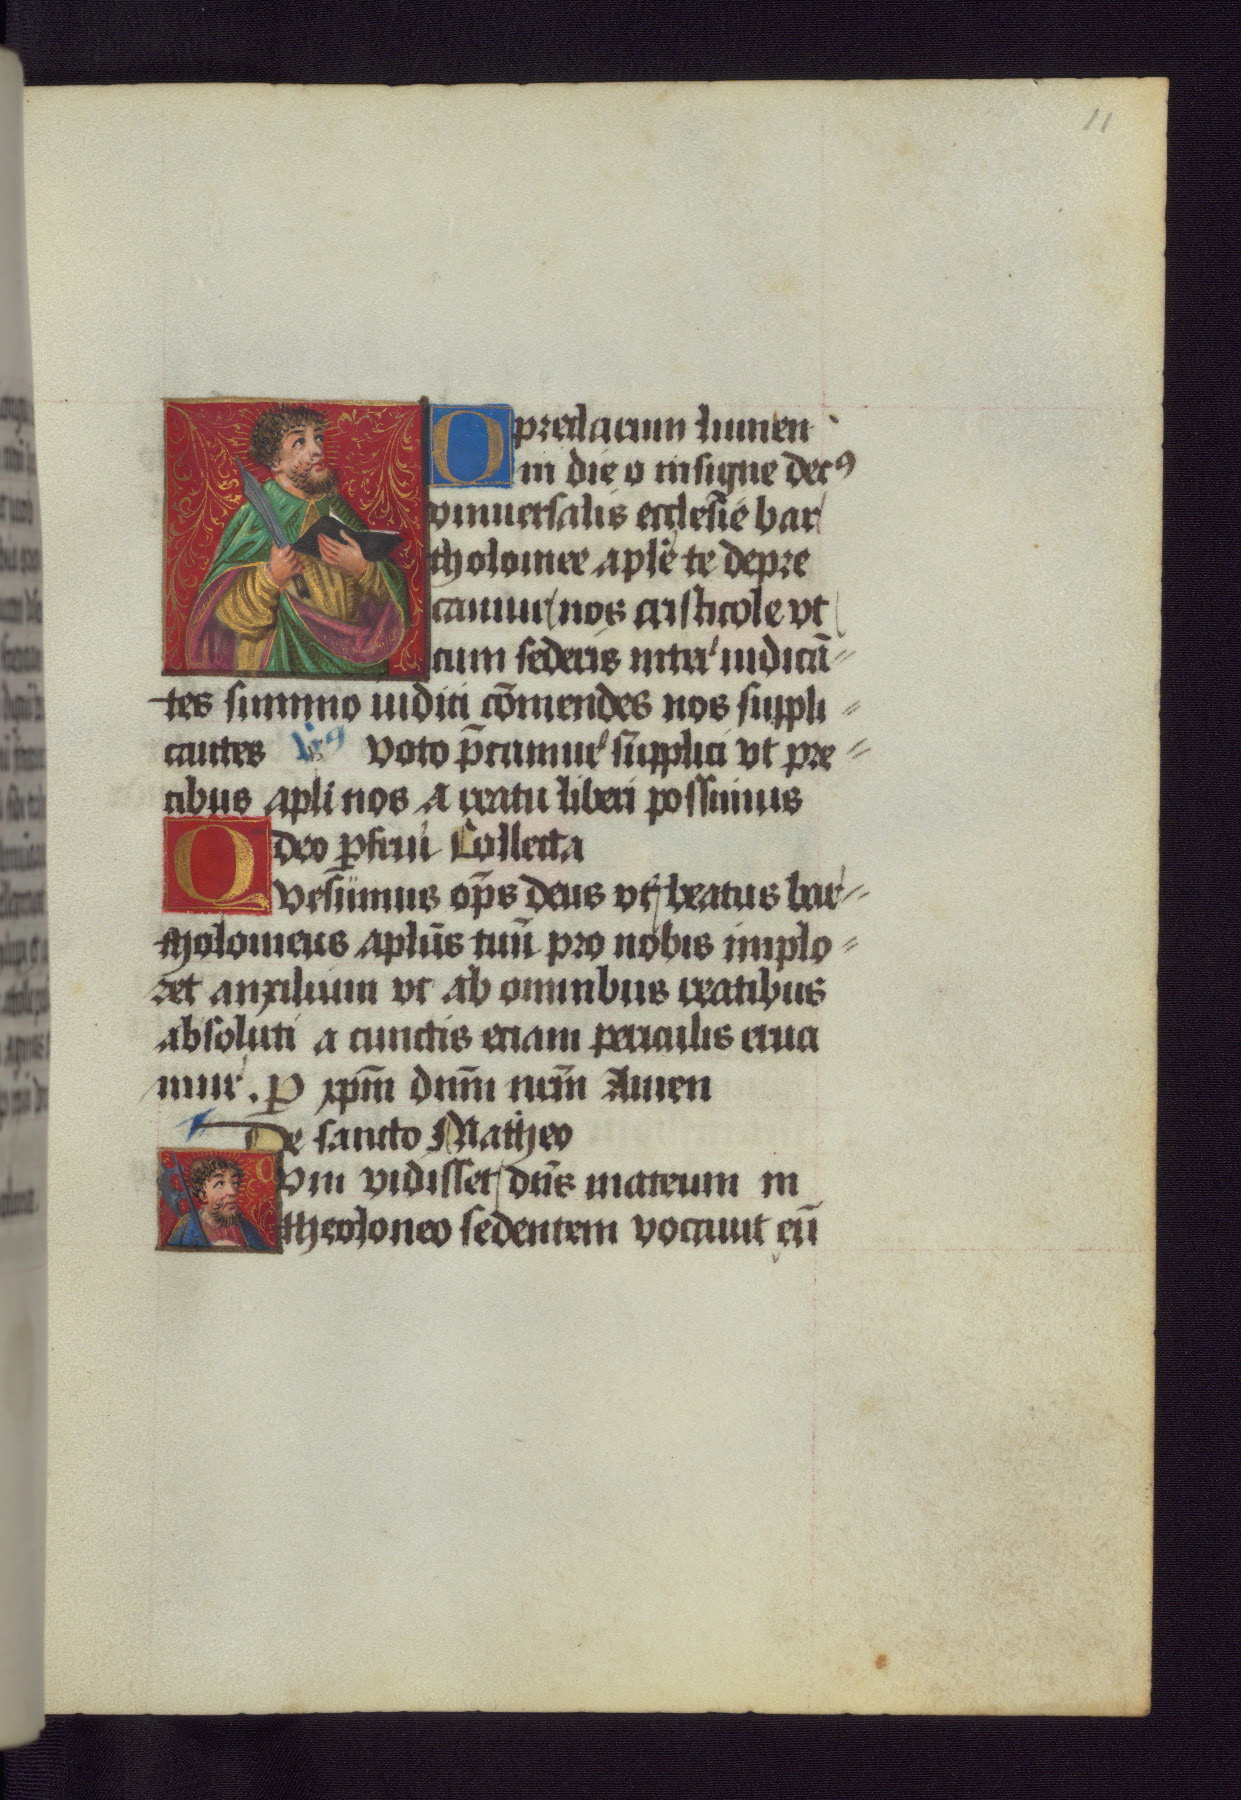 11
O preclarum lumen
in die o insigne decꝰ
vniuersalis ecclesie bar
tholomee aplē te depre
camur nos cristicole vt
cum sederis inter iudicā
tes summo iudici cōmendes nos suppli
cantes Vꝰ voto p̄camur supplici vt pre
cibus apli nos a reatu liberi possimus
deo ꝑfrui Collecta
Quesumus op̄s deus vt beatus bar
tholomeus aplūs tuū pro nobis implo
ret auxilium vt ab omnibus reatibus
absoluti a cunctis eciam periculis erua
mur . P xp̄m dn̄m nr̄m Amen
De sancto Matheo
Cvm vidisset dn̄s mateum in
theoloneo sedentem vocauit eū